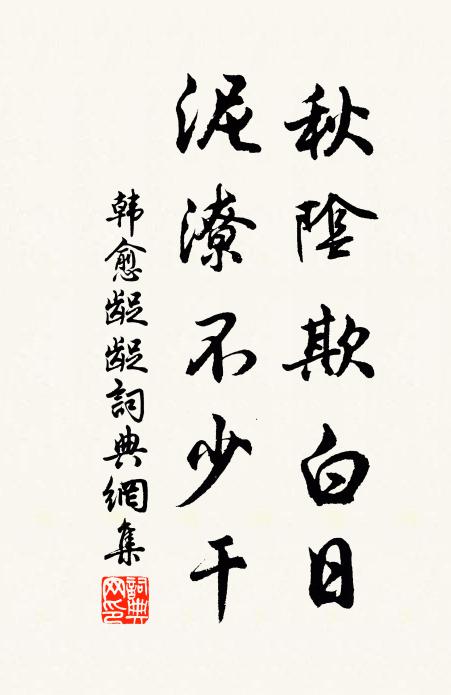 秋陰欺白日
泥潦不少干
韩愈齪齪詞典網集
詞典网印